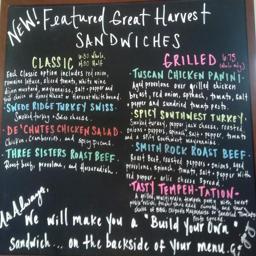 NEW! Featured Great Harvest
SANDWICHES
CLASSIC 6.50 Whole,
4.50 Half
Each Classic option includes red onion,
romaine lettuce, sliced tomato, white wine
dijon mustard, mayonnaise, salt + pepper and
Harvest Wheat bread.
SWEDE RIDGE TURKEY SWISS-
Smoked turkey + Swiss cheese.
DE'CHUTES CHICKEN SALAD-
Chicken, and
THREE SISTERS ROAST BEEF-
Roast beef, provolone, and Horseradish.
GRILLED 6.75
TUSCAN CHICKEN PANINI-
Aged provolone over grilled chicken
breast, red onion, spinach, tomato, salt
+ pepper and sundried tomato pesto.
SPICY SOUTHWEST TURKEY-
Smoked turkey, pepper jack cheese, roasted
onions + peppers, spinach, salt + pepper, tomato
and a spicy southwest mayonnaise.
SMITH ROCK ROAST BEEF-
Roast Beef, roasted peppers + onions, aged
provolone, spinach, tomato, salt + pepper with
red pepper
TASTY TEMPEH-TATION-
grilled tempeh with pepper
Mayonnaise or Sundried Tomato
As Always:
We will make you a "Build Your Own"
Sandwich... on the backside of your menu.